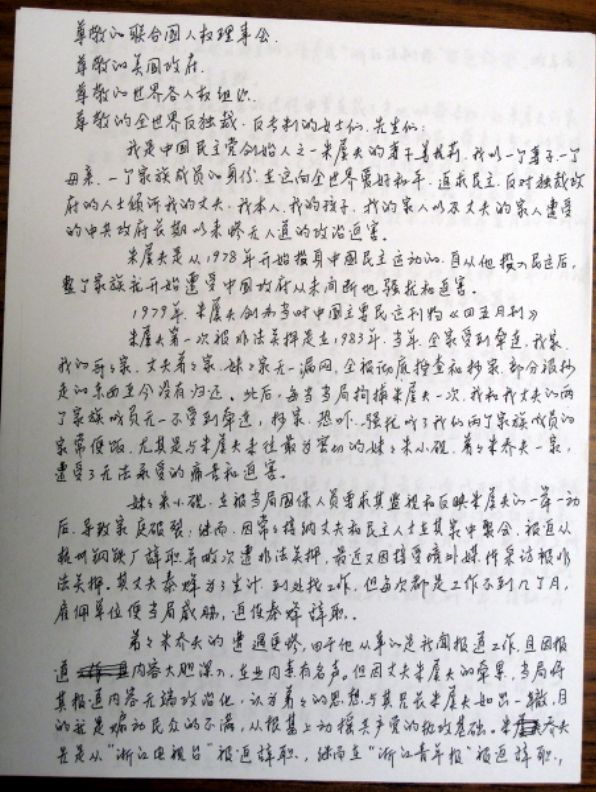 尊敬的联合国人权理事会.
尊敬的美国政府.
尊敬的世界各人权组织.
尊敬的全世界反独裁.反专制的女士们.先生们:
我是中国民主党创始人之一朱虞夫的妻子姜杭莉.我以一个妻子.一个
母亲.一个家族成员的身份.在这向全世界爱好和平.追求民主.反对独裁政
府的人士倾诉我的丈夫.我本人.我的孩子.我的家人以及丈夫的家人遭受
的中共政府长期以来惨无人道的政治迫害.
朱虞夫是从1978年开始投身中国民主运动的.自从他投入民运后,
整个家族就开始遭受中国政府从未间断地骚扰和迫害.
1979年.朱虞夫创办当时中国主要民运刊物《四五月刊》
朱虞夫第一次被非法关押是在1983年.当年.全家受到牵连.我家.
我的哥哥家.丈夫弟弟家.妹妹家无一漏网.全被彻底搜查和抄家.部分被抄
走的东西至今没有归还.此后,每当当局拘捕朱虞夫一次.我和我丈夫的两
个家族成员无一不受到牵连,抄家.恐吓.骚扰成了我们两个家族成员的
家常便饭.尤其是与朱虞夫来往最为密切的妹妹朱小砚.弟弟朱乔夫一家,
遭受了无法承受的痛苦和迫害.
妹妹朱小砚.在被当局国保人员要求其监视和反映朱虞夫的一举一动
后.导致家庭破裂;继而.因常常接纳丈夫和民主人士在其家中聚会.被迫从
杭州钢铁厂辞职并数次遭非法关押.最近又因接受境外媒体采访被非
法关押.其丈夫秦蜂为了生计.到处找工作.但每次都是工作不到几个月,
雇佣单位便当局威胁,迫使秦蜂辞职.
弟弟朱乔夫的遭遇更惨.由于他从事的是新闻报道工作.且因报
道内容大胆深入.在业内素有名声.但因丈夫朱虞夫的牵累,当局将
其报道内容无端政治化,认为弟弟的思想与其兄长朱虞夫如出一辙,目
的就是煽动民众的不满,从根基上动摇共产党的执政基础.朱乔夫
先是从“浙江电视台”被迫辞职,继而在“浙江青年报”被迫辞职.,